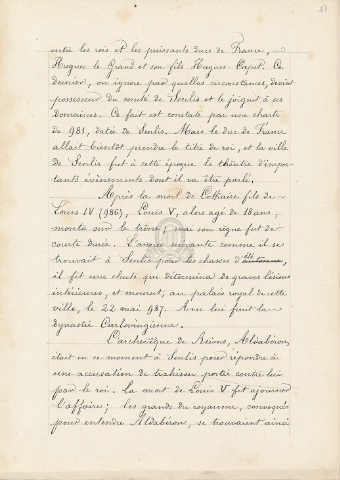 entre les rois et les puissants ducs de France,
Hugues le Grand et son fils Hugues Capet. Ce
dernier, on ignore par quelles circonstances, devint
possesseur du comté de Senlis et le joignit à ses
domaines. Ce fait est constaté par une charte
de 981, datée de Senlis. Mais le duc de France
allait bientôt prendre le titre de roi, et la ville
de Senlis fut à cette époque le théâtre d'impor-
tants évènements dont il va être parlé.
Après la mort de Lothaire fils de
Louis IV (986), Louis V, alors agé de 18 ans,
monta sur le trône; mais son règne fut de
courte durée. L'année suivante comme il se
trouvait à Senlis pour les chasses
il fit une chute qui détermina de graves lésions
intérieures, et mourut, au palais royal de cette
ville, le 22 mai 987. Avec lui finit la
dynastie Carlovingienne.
L'archevêque de Reims, Aldabéron,
était en ce moment à Senlis pour répondre à
une accusation de trahison portée contre lui
par le roi. La mort de Louis V fit ajourner
l'affaire; les grands du royaume, convoqués
pour entendre Aldabéron, se trouvaient ainsi